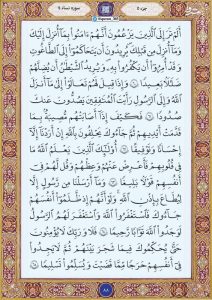 جزء ۵
سوره نساء ۴
أَلَمْ تَرَ إِلَى ٱلَّذِينَ يَزْعُمُونَ أَنَّهُمْ ءَامَنُوا۟ بِمَآ أُنزِلَ إِلَيْكَ
وَمَآ أُنزِلَ مِن قَبْلِكَ يُرِيدُونَ أَن يَتَحَاكَمُوٓا۟ إِلَى ٱلطَّـٰغُوتِ
وَقَدْ أُمِرُوٓا۟ أَن يَكْفُرُوا۟ بِهِۦ وَيُرِيدُ ٱلشَّيْطَـٰنُ أَن يُضِلَّهُمْ
ضَلَـٰلًۢا بَعِيدًا ۝٦٠ وَإِذَا قِيلَ لَهُمْ تَعَالَوْا۟ إِلَىٰ مَآ أَنزَلَ
ٱللَّهُ وَإِلَى ٱلرَّسُولِ رَأَيْتَ ٱلْمُنَـٰفِقِينَ يَصُدُّونَ عَنكَ
صُدُودًا ۝٦١ فَكَيْفَ إِذَآ أَصَـٰبَتْهُم مُّصِيبَةٌۢ بِمَا
قَدَّمَتْ أَيْدِيهِمْ ثُمَّ جَآءُوكَ يَحْلِفُونَ بِٱللَّهِ إِنْ أَرَدْنَآ إِلَّآ
إِحْسَـٰنًا وَتَوْفِيقًا ۝٦٢ أُو۟لَـٰٓئِكَ ٱلَّذِينَ يَعْلَمُ ٱللَّهُ مَا
فِى قُلُوبِهِمْ فَأَعْرِضْ عَنْهُمْ وَعِظْهُمْ وَقُل لَّهُمْ فِىٓ
أَنفُسِهِمْ قَوْلًۢا بَلِيغًا ۝٦٣ وَمَآ أَرْسَلْنَا مِن رَّسُولٍ إِلَّا
لِيُطَاعَ بِإِذْنِ ٱللَّهِ وَلَوْ أَنَّهُمْ إِذ ظَّلَمُوٓا۟ أَنفُسَهُمْ
جَآءُوكَ فَٱسْتَغْفَرُوا۟ ٱللَّهَ وَٱسْتَغْفَرَ لَهُمُ ٱلرَّسُولُ
لَوَجَدُوا۟ ٱللَّهَ تَوَّابًا رَّحِيمًا ۝٦٤ فَلَا وَرَبِّكَ لَا يُؤْمِنُونَ
حَتَّىٰ يُحَكِّمُوكَ فِيمَا شَجَرَ بَيْنَهُمْ ثُمَّ لَا يَجِدُوا۟
فِىٓ أَنفُسِهِمْ حَرَجًا مِّمَّا قَضَيْتَ وَيُسَلِّمُوا۟ تَسْلِيمًا ۝٦٥
۸۸